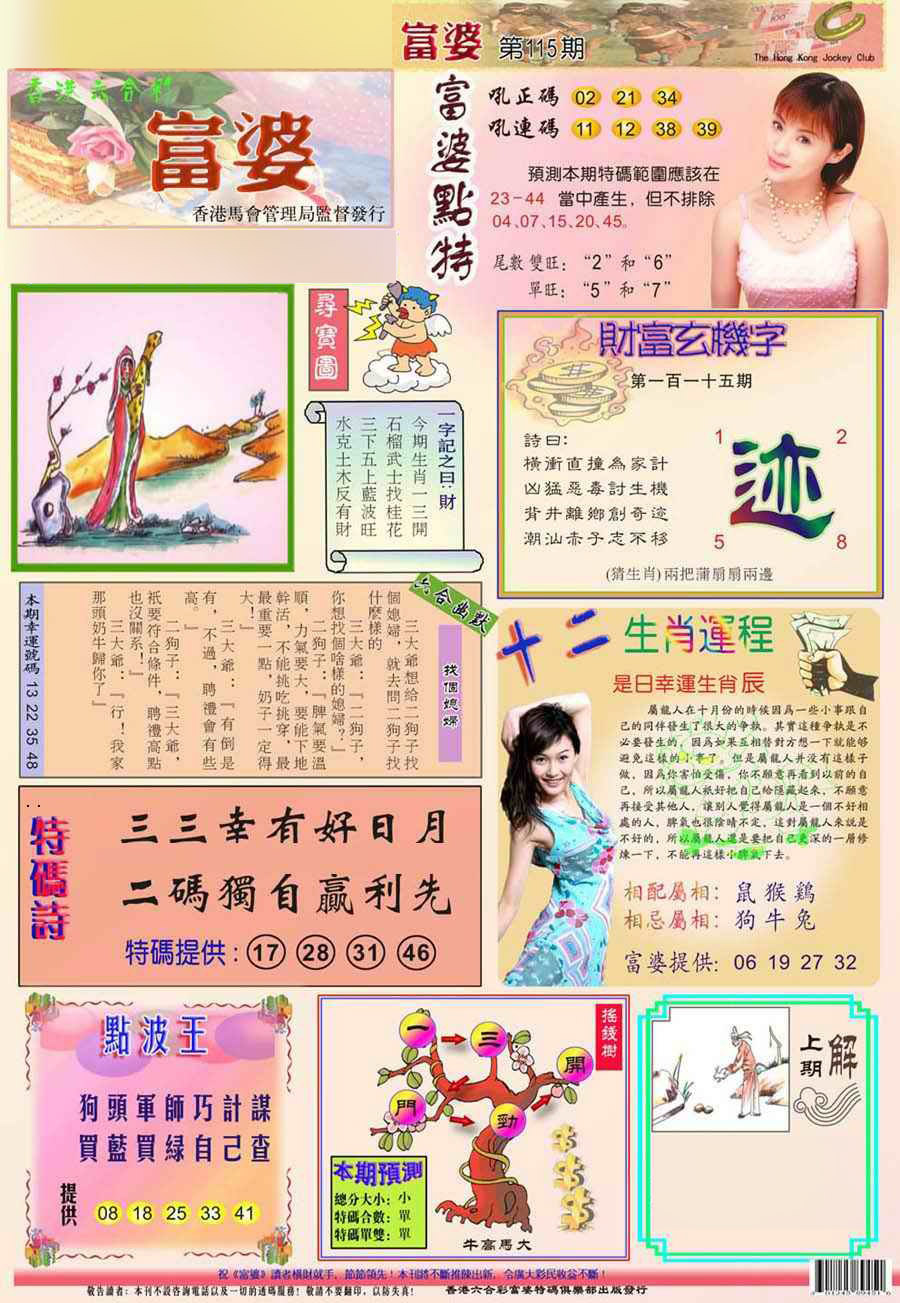 富婆 第115期
The Hong Kong Jockey Club
香港六合彩
富婆
香港馬會管理局監督發行
富婆點特
吼正碼 02 21 34
吼連碼 11 12 38 39
預測本期特碼範圍應該在
23-44 當中產生，但不排除
04、07、15、20、45。
尾數雙旺：“2”和“6”
單旺：“5”和“7”
尋寶圖
一字記之曰：財
今期生肖一三開
石榴武士找桂花
三下五上藍波旺
水克土木反有財
財富玄機字
第一百一十五期
詩曰：
橫衝直撞為家計
凶猛惡毒討生機
背井離鄉創奇迹
潮汕赤子志不移
1 2
迹
5 8
(猜生肖)兩把蒲扇扇兩邊
六合幽默
找個媳婦
三大爺想給二狗子找
個媳婦，就去問二狗子找
什麼樣的
三大爺：『二狗子，
你想找個啥樣的媳婦？』
二狗子：『脾氣要溫
順，力氣要大，要能下地
幹活，不能挑吃挑穿，最
最重要一點，奶子一定得
大！』
三大爺：『有倒是
有，不過，聘禮會有些
高。』
二狗子：『三大爺，
衹要符合條件，聘禮高點
也沒關系！』
三大爺：『行！我家
那頭奶牛歸你了』
本期幸運號碼 13 22 35 48
十二生肖運程
是日幸運生肖辰
屬龍人在十月份的時候因爲一些小事跟自
己的同伴發生了很大的争執。其實這種争執是不
必要發生的，因爲如果互相替對方想一下就能够
避免這樣的小事了。但是屬龍人并没有這樣子
做，因爲你害怕受傷，你不願意再看到以前的自
己，所以屬龍人衹好把自己給隱藏起來，不願意
再接受其他人，讓別人覺得屬龍人是一個不好相
處的人，脾氣也很陰晴不定，這對屬龍人來說是
不好的，所以屬龍人還是要把自己更深的一層修
煉一下，不能再這樣小脾氣下去。
相配屬相：鼠猴鷄
相忌屬相：狗牛兔
富婆提供：06 19 27 32
特碼詩
三三幸有好日月
二碼獨自贏利先
特碼提供：17 28 31 46
點波王
狗頭軍師巧計謀
買藍買緑自己查
提供 08 18 25 33 41
搖錢樹
一 三 開
門 勁
本期預測
總分大小：小
特碼合數：單
特碼單雙：單
牛高馬大
解上期
祝《富婆》讀者橫財就手，節節領先！本刊將不斷推陳出新，令廣大彩民收益不斷！
敬告讀者：本刊不設咨詢電話以及一切的透碼服務！敬請不要翻印，以防失真！ 香港六合彩富婆特碼俱樂部出版發行